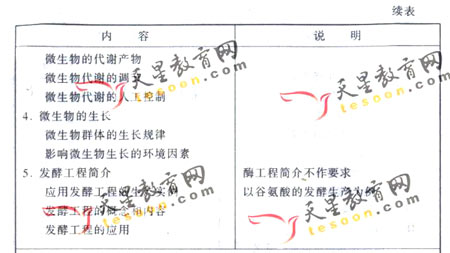 续表
内 容 说 明
微生物的代谢产物
微生物代谢的调节
微生物代谢的人工控制
4. 微生物的生长
微生物群体的生长规律
影响微生物生长的环境因素
5. 发酵工程简介 酶工程简介不作要求
应用发酵工程的生产实例 以谷氨酸的发酵生产为例
发酵工程的概念和内容
发酵工程的应用
天星教育网
tesoon.com
天星教育网
tesoon.com
天星教育网
tesoon.com
天星教育网
tesoon.com